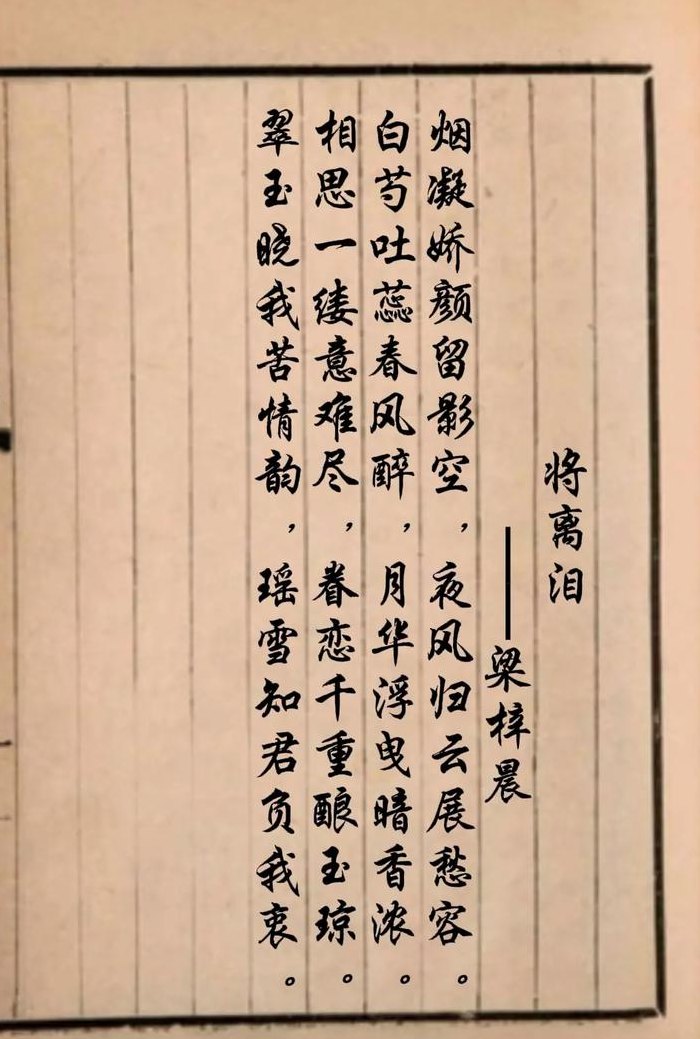 将离泪
——梁梓晨
烟凝娇颜留影空，夜风归云展愁容。
白芍吐蕊春风醉，月华浮曳暗香浓。
相思一缕意难尽，眷恋千重酿玉琼。
翠玉晓我苦情韵，瑶雪知君负我衷。